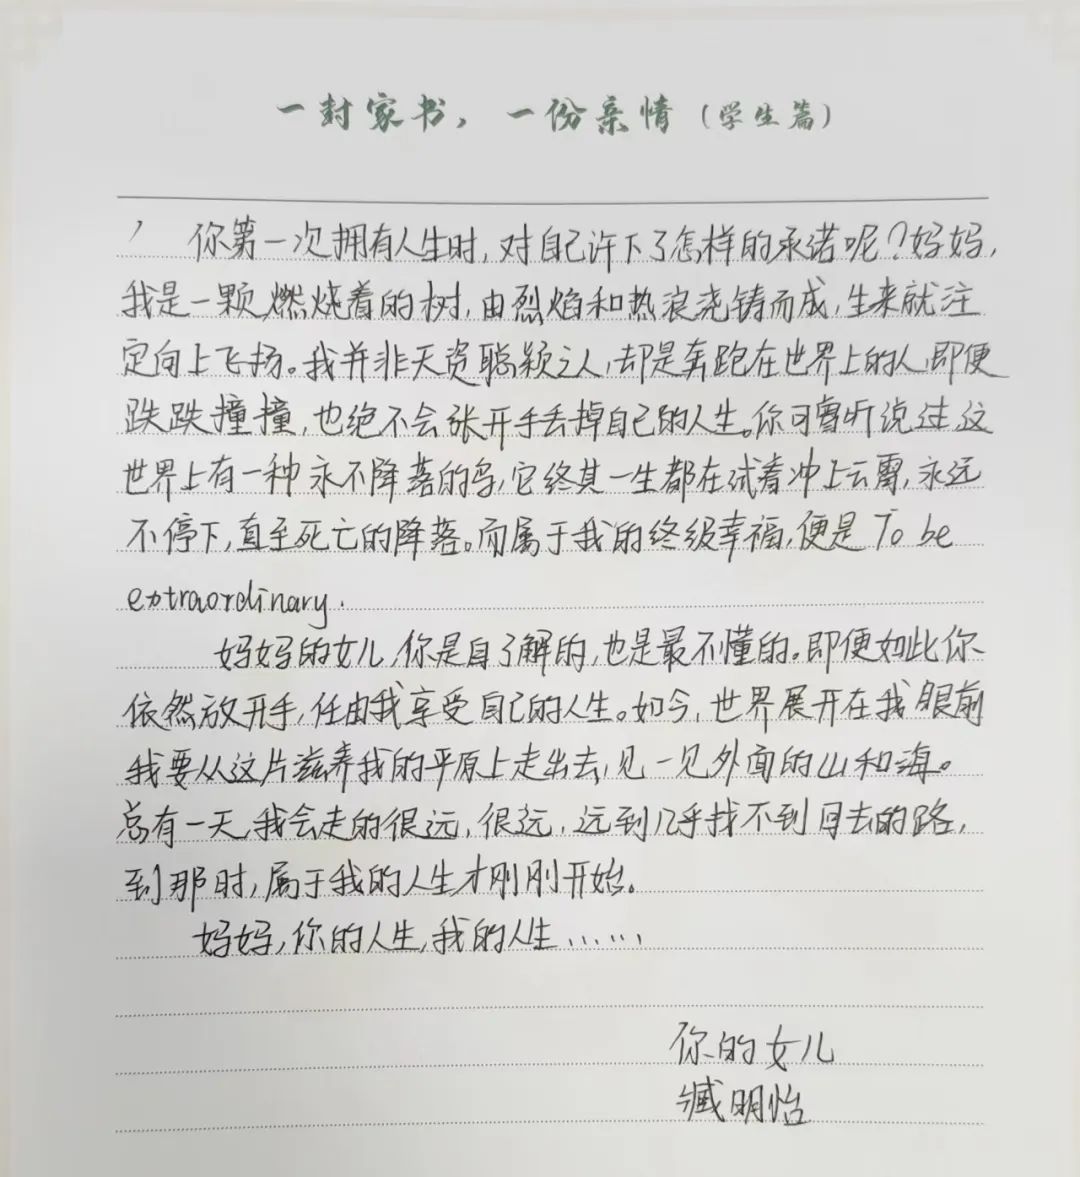 一封家书，一份亲情（学生篇）
你第一次拥有人生时，对自己许下了怎样的承诺呢？妈妈，
我是一颗燃烧着的树，由烈焰和热浪浇铸而成，生来就注
定向上飞扬。我并非天资聪颖之人，却是奔跑在世界上的人，即便
跌跌撞撞，也绝不会张开手丢掉自己的人生。你可曾听说过，这
世界上有一种永不降落的鸟，它终其一生都在试着冲上云霄，永远
不停下，直至死亡的降落。而属于我的终级幸福，便是 To be
extraordinary.
妈妈的女儿，你是自了解的，也是最不懂的。即便如此你
依然放开手，任由我享受自己的人生。如今，世界展开在我眼前
我要从这片滋养我的平原上走出去，见一见外面的山和海。
总有一天，我会走的很远，很远，远到几乎找不到回去的路，
到那时，属于我的人生才刚刚开始。
妈妈，你的人生，我的人生……
你的女儿
臧明怡